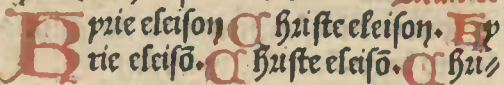 Kyrie eleiſon Chriſte eleiſon. Ky
rie eleiſō. Chriſte eleiſō. Chri⸗